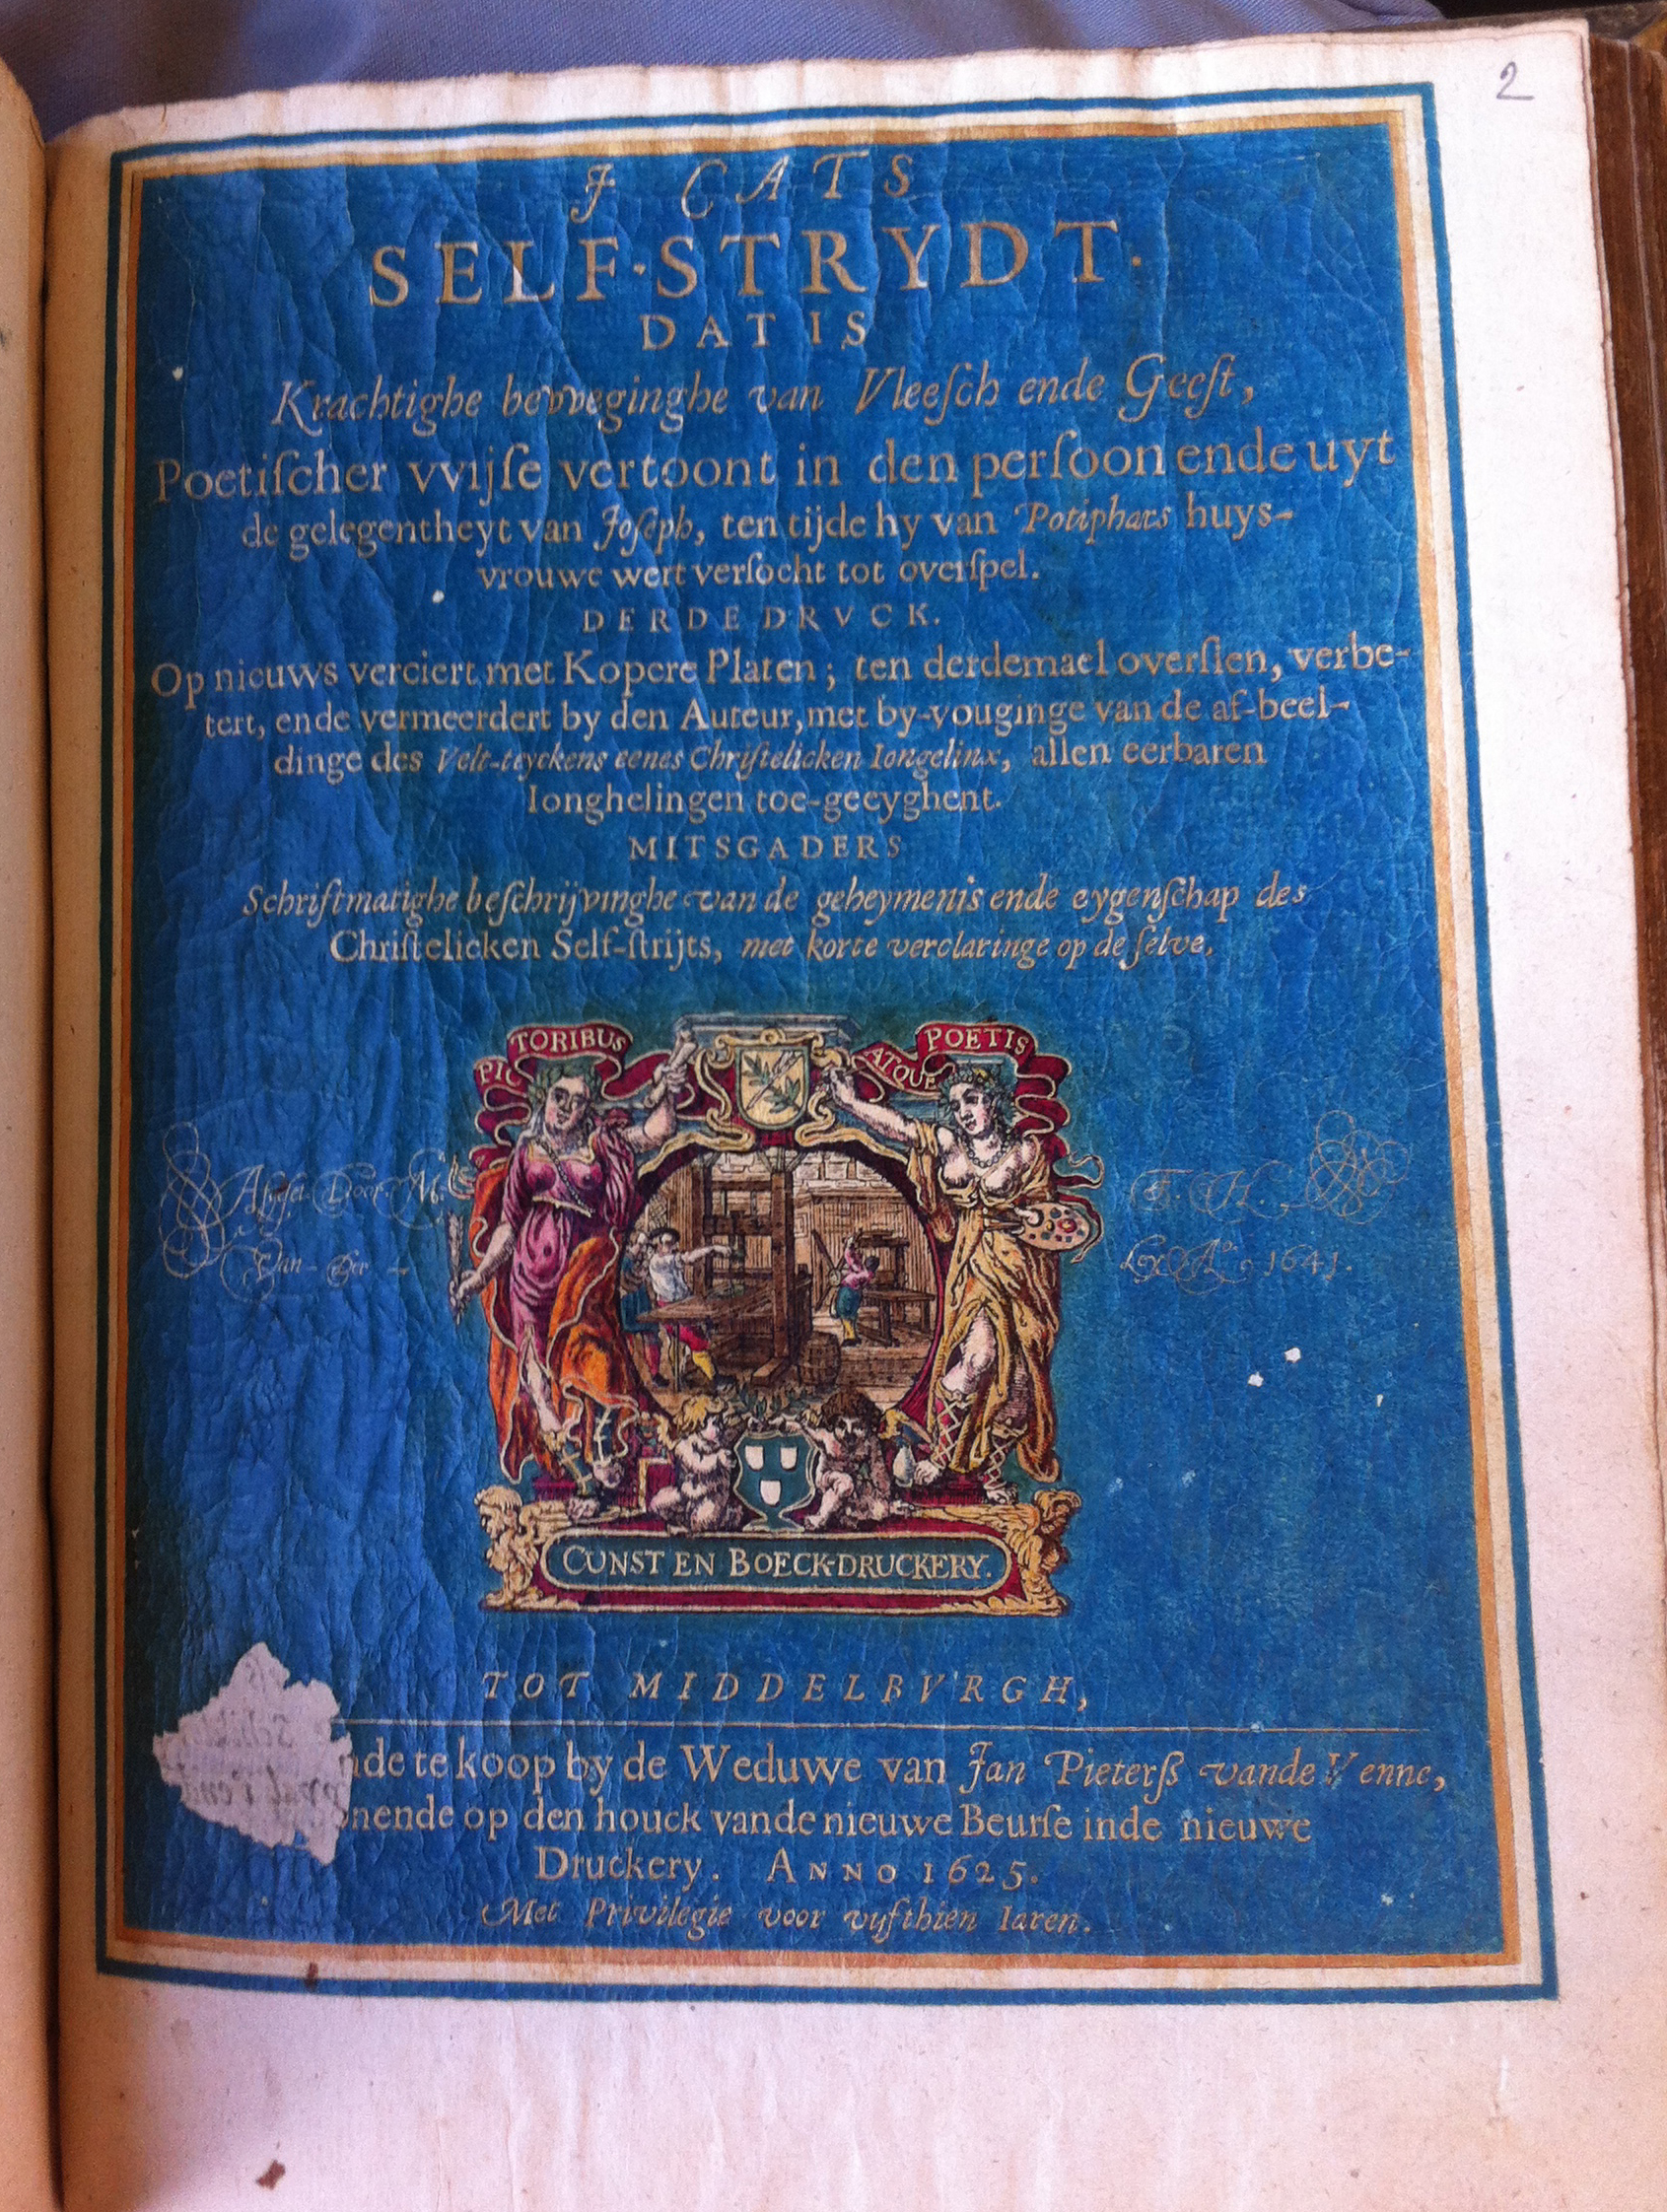 2
J CATS
SELF-STRYDT.
DAT IS
Krachtighe bevveginghe van Vleeſch ende Geeſt,
Poetiſcher vvijſe vertoont in den perſoon ende uyt
de gelegentheyt van Joſeph, ten tijde hy van Potiphars huys-
vrouwe wert verſocht tot overſpel.
DERDE DRVCK.
Op nieuws verciert met Kopere Platen; ten derdemael overſien, verbe-
tert, ende vermeerdert by den Auteur, met by-vouginge van de af-beel-
dinge des Velt-teyckens eenes Chriſtelicken Iongelinx, allen eerbaren
Ionghelingen toe-geeyghent.
MITSGADERS
Schriftmatighe beſchrijvinghe van de geheymenis ende eygenſchap des
Chriſtelicken Self-ſtrijts, met korte verclaringe op de ſelve,
PICTORIBUS ATQUE POETIS
Door M.
Van Der
1641.
CUNST EN BOECK-DRUCKERY.
TOT MIDDELBVRGH,
te koop by de Weduwe van Jan Pieterſz vande Venne,
op den houck vande nieuwe Beurſe inde nieuwe
Druckery. ANNO 1625.
Met Privilegie voor vijfthien Iaren.